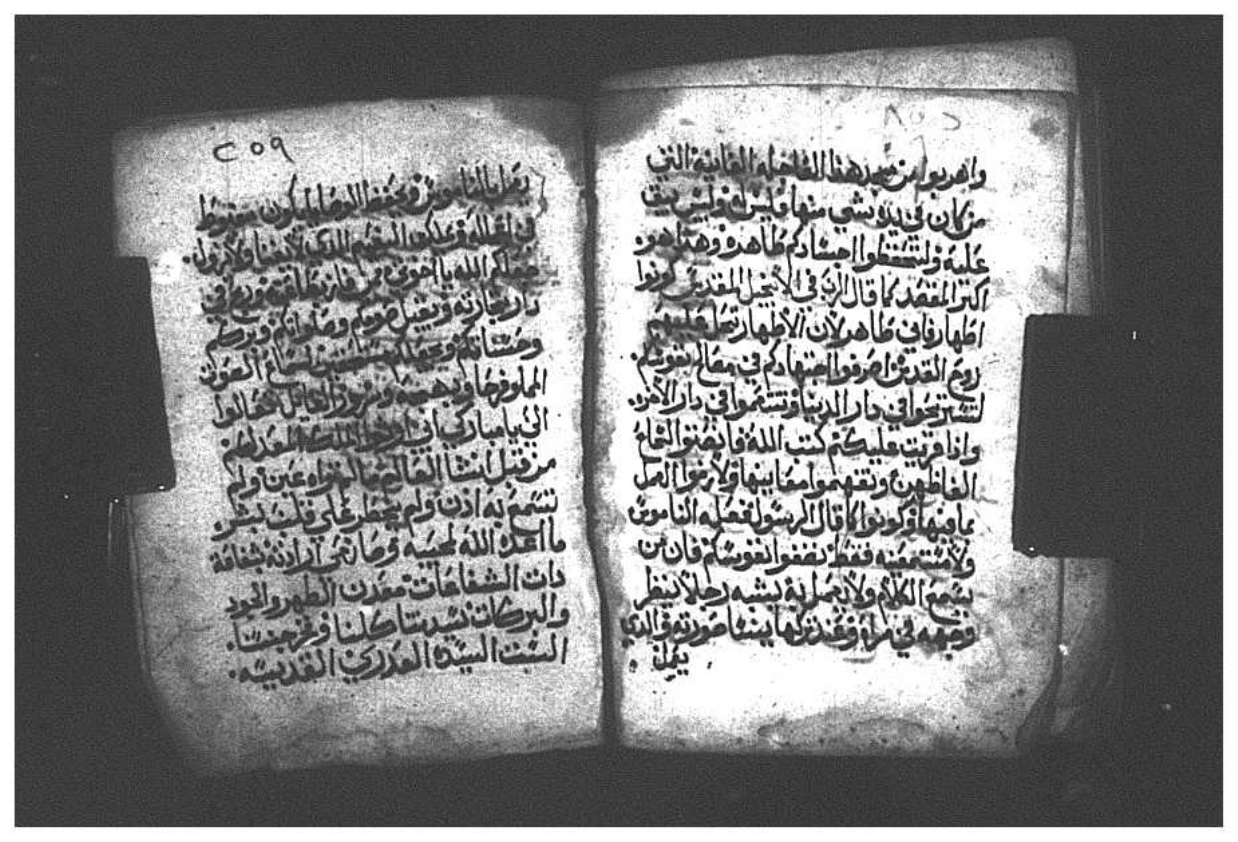 ٢٥٨
واهربوا من مجد هذا العاجله الفانية التي
من كان في يده شي منها فليس له وليس يبقى
عليه ولتحفظوا اجسادكم طاهره وهذا هو
اكبر المقصد كما قال الرب في الانجيل المقدس كونوا
اطهار فاني طاهر لان الاطهار تحل عليهم
روح القدس اصرفوا اجتهادكم في مصالح نفوسكم
لتستريحوا في دار الدنيا وتتنعموا في دار الاخره
واذا قريت عليكم كتب الله فانصتوا لسماع
الفاظهن وتفهموا معانيها ولازموا العمل
بما فيها وكونوا كما قال الرسول فعله الناموس
ولا مستمعينه فقط تنفعوا نفوسكم فان من
يسمع الكلام ولا يعمل به يشبه رجلا ينظر
وجهه في مراه وعند تركها ينسا صورته والذي
يعمل
٢٥٩
يعمل بالناموس ويحفظ الوصايا يكون مغبوط
في افعاله وعلكه النعيم الذي لا يفنا ولا يزول
جعلكم الله يا اخوتي ممن فاز بطاعته وربح في
دار تجارته ويقبل صومكم وصلواتكم وبركم
وحسناتكم ويجعلكم مستحقين لسماع الصوت
المملو فرحا وبهجه وسرور القايل تعالوا
الي يا مباركي ابي ارثوا الملك المعد لكم
من قبل انشا العالم ما لم تراه عين ولم
تسمع به اذن ولم يخطر على قلب بشر
ما اعده الله لمحبيه وصانعي ارادته بشفاعة
ذات الشفاعات معدن الطهر والجود
والبركات سيدتنا كلنا وفخر جنسنا
الست السيده العدري القديسه